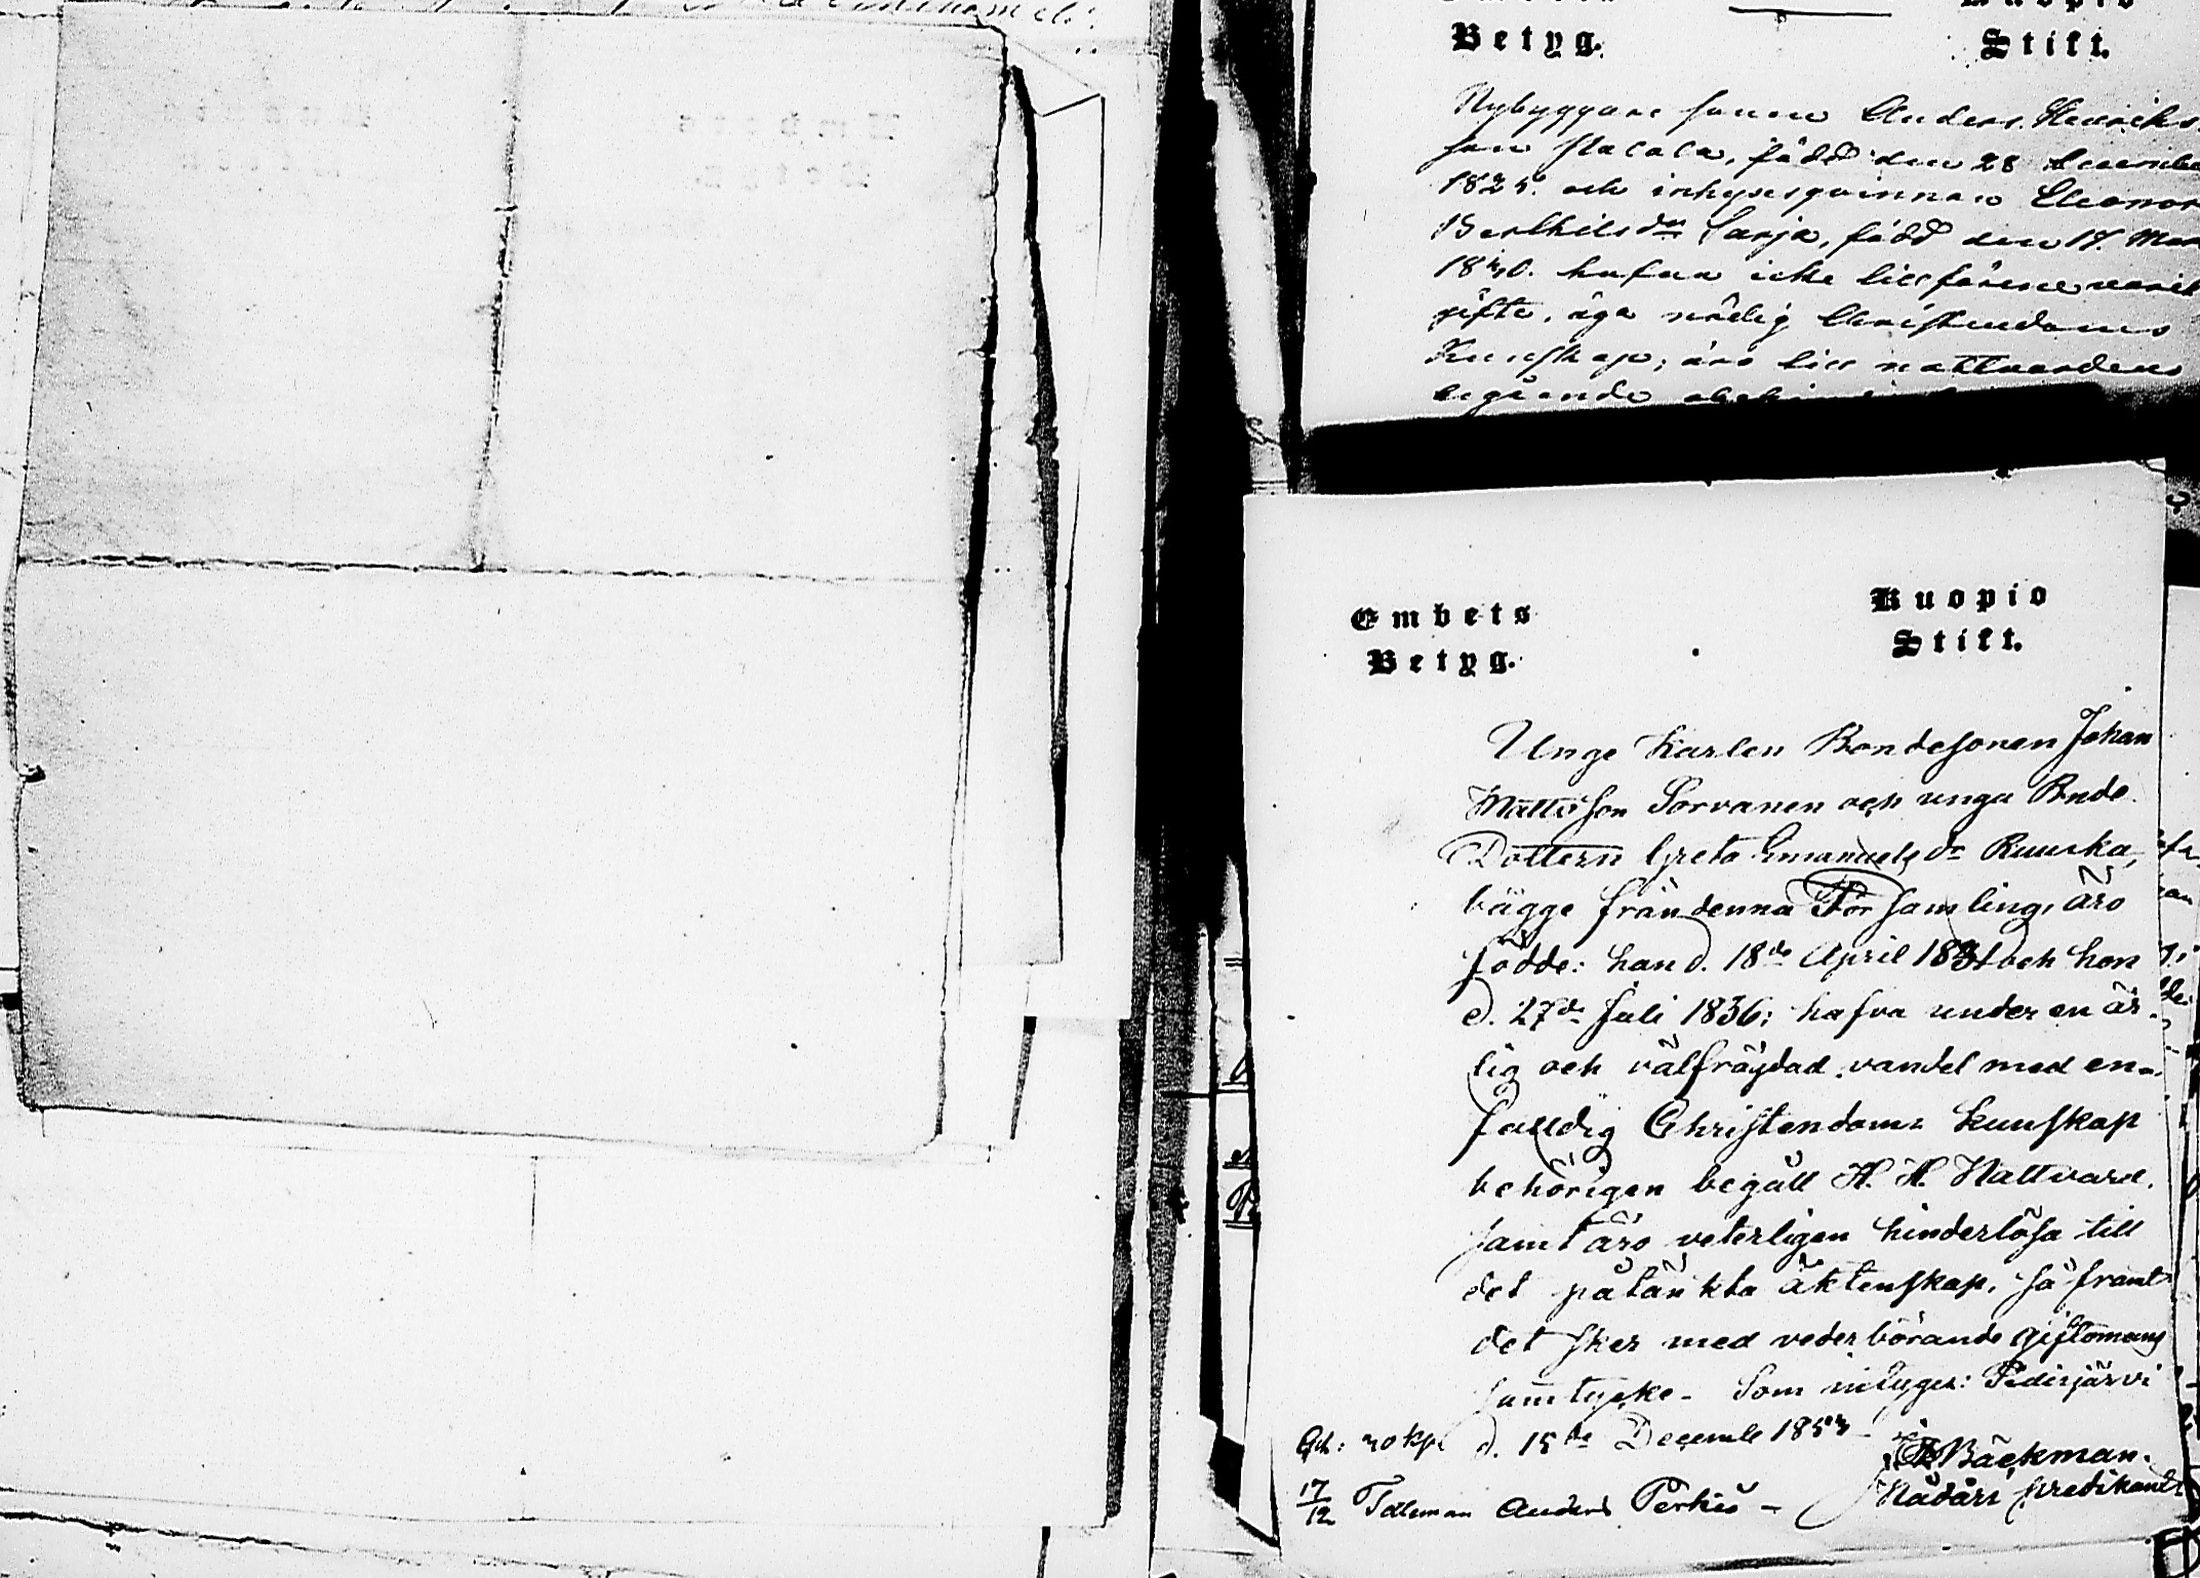 Betyg.
Stift.
Nybyggare sonen Anders Henriks
son född den 28 December
182 och inhysesqvinnan Eleonor
Berthils dr Sarja, född den 17. Mar
1830. hafva icke tillförene varit
gifte, äga nödig Christendoms
Kunskap; äro till nattvardens
begående
Embets
Betyg.
Kuopio
Stift.
Unge Karlen Bondesonen Johan
Mattsson Sorvanen och unga Bnde
Dottern Greta Emanuels dr Ruuska,
bägge från denna Församling, äro
födde: han d. 18de April 1831 och hon
d. 27de Juli 1836; hafva under en är-
lig och välfrägdad vandel med en-
falldig Christendoms Kunskap
behörigen begått H. H. Nattvard,
samt äro veterligen hinderlösa till
det påtänkta äktenskap, så framt
det sker med vederbörande giftomans
samtycke - Som intygar: Pidisjärvi
d. 15de Decemb 185
Bäckman.
Nådårs predikant
17/12 Taleman Anders